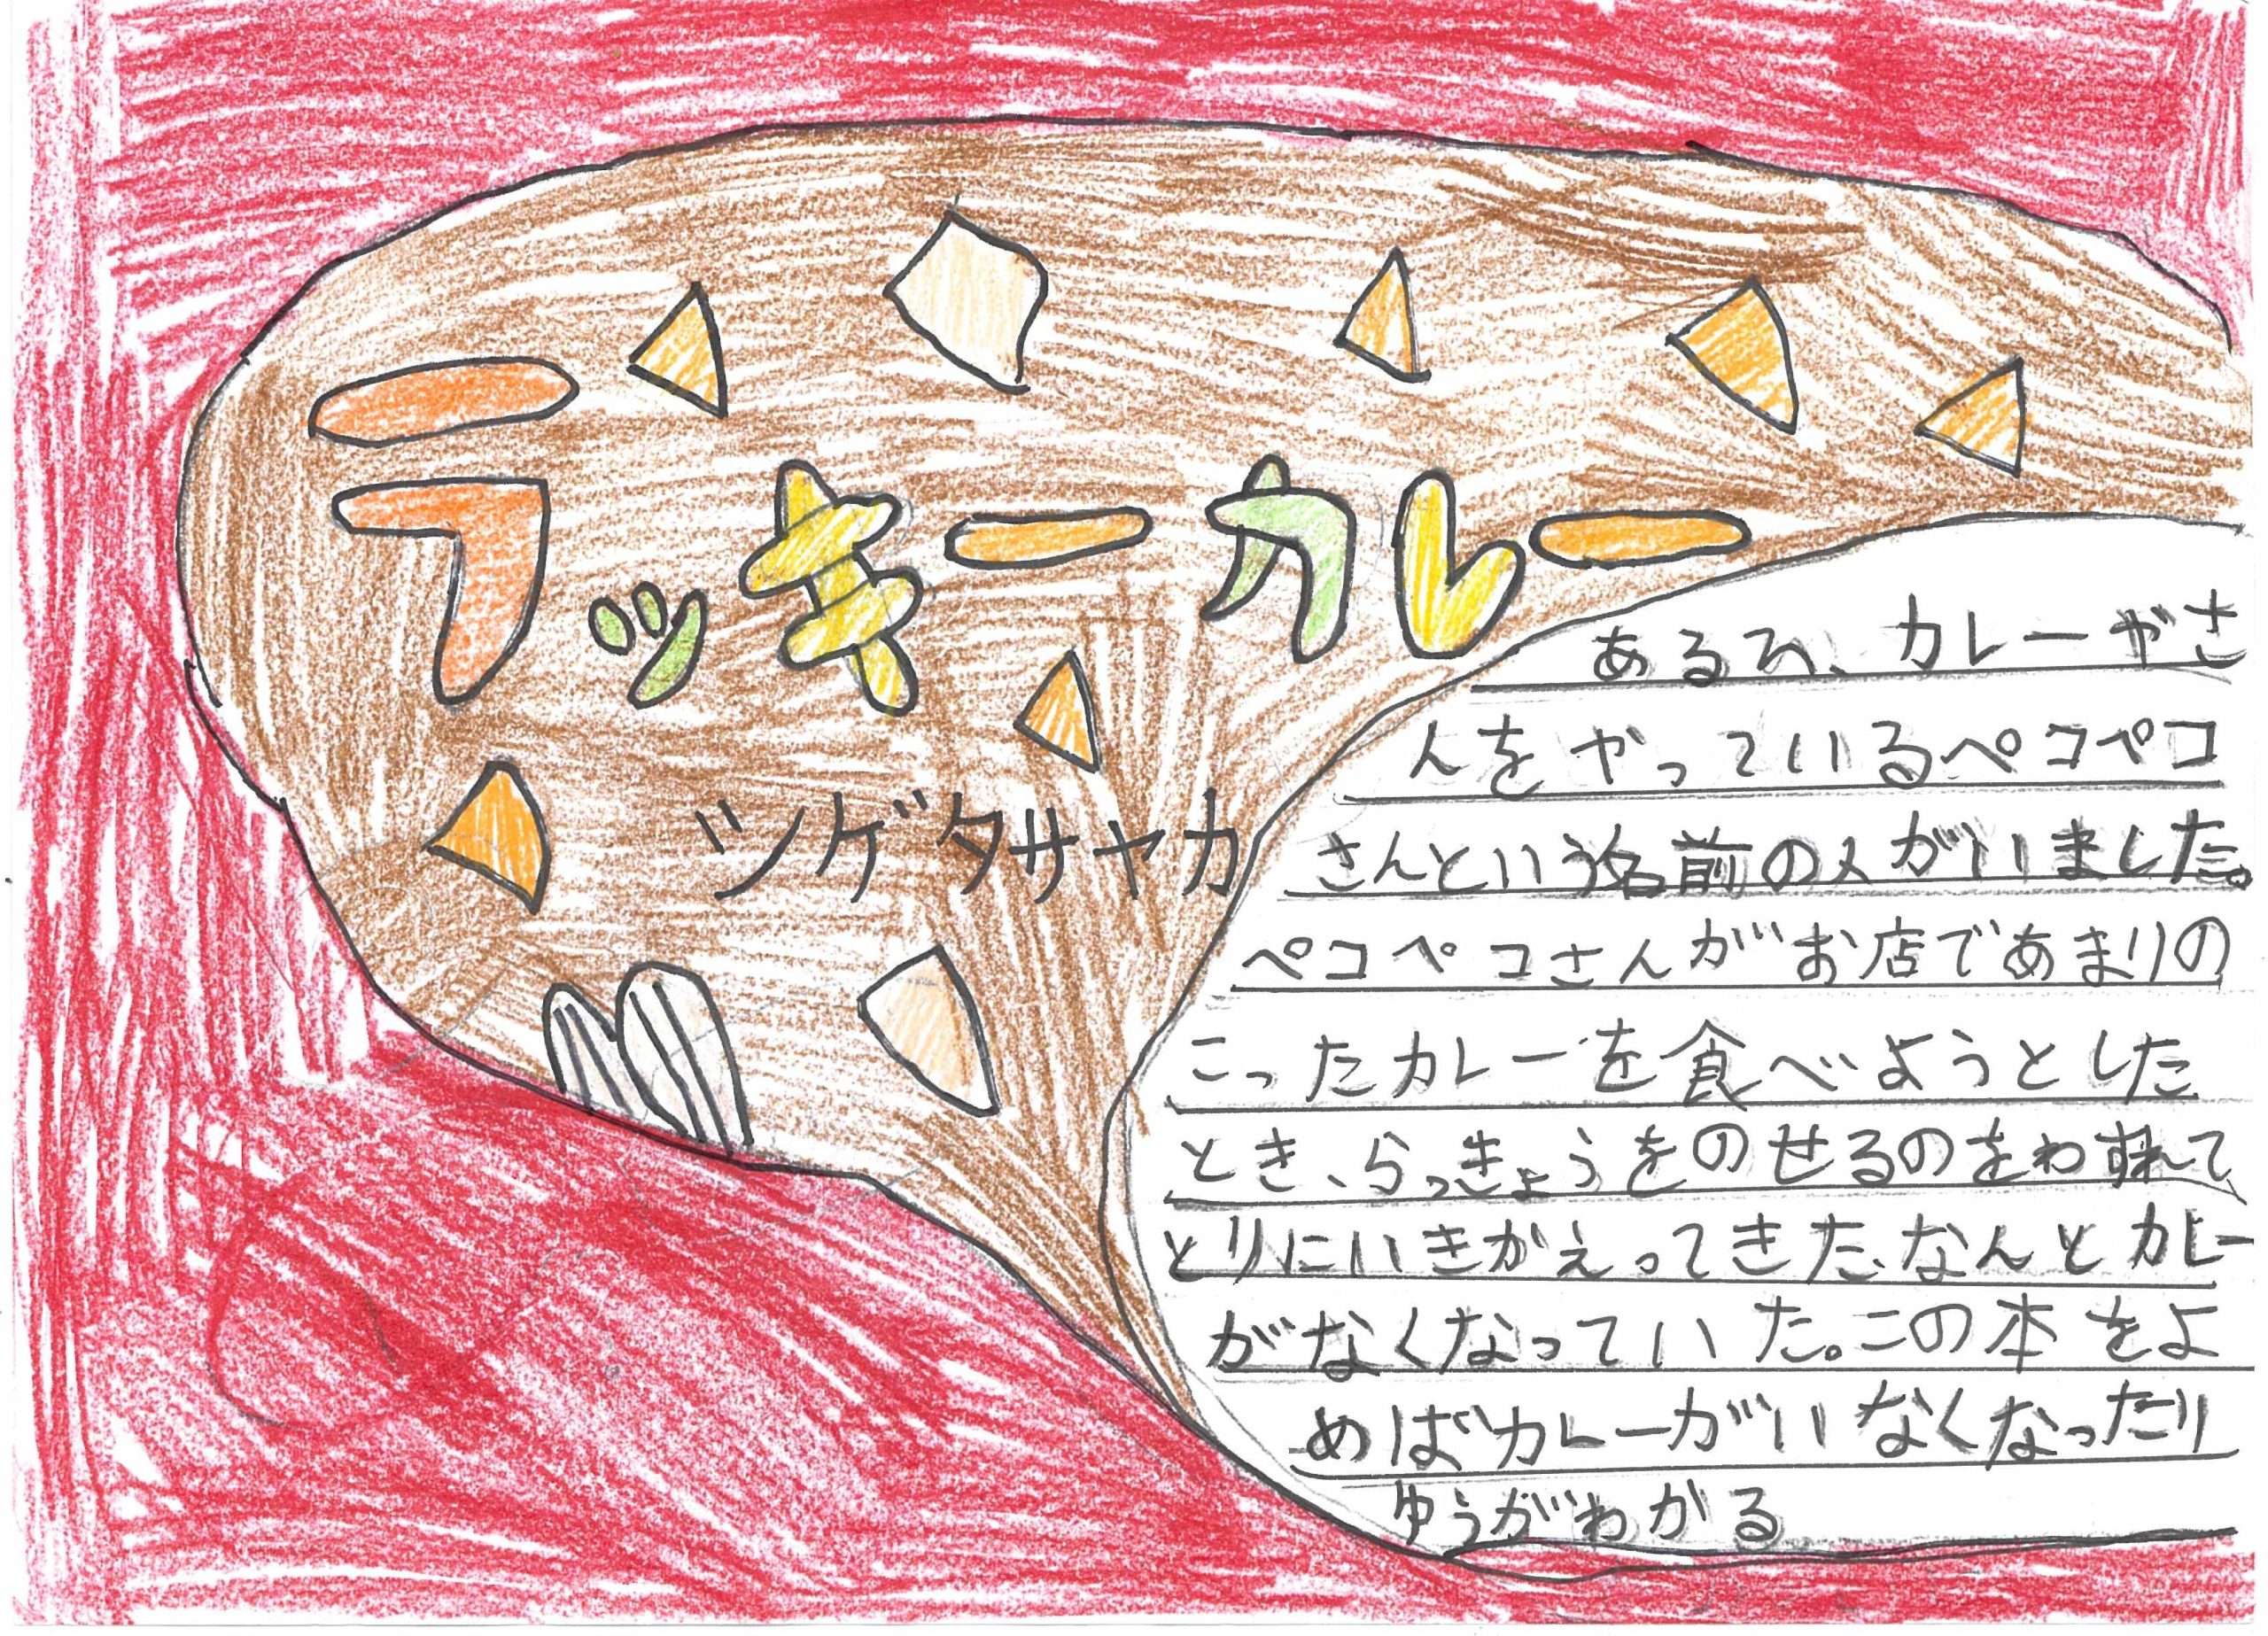 ラッキーカレー
ツゲタサヤカ
あるひ、カレーやさ
んをやっているペコペコ
さんという名前の人がいました。
ペコペコさんがお店であまりの
こったカレーを食べようとした
とき、らっきょうをのせるのをわすれて
とりにいきかえってきた、なんとカレー
がなくなっていた。この本をよ
めばカレーがいなくなったり
ゆうがわかる